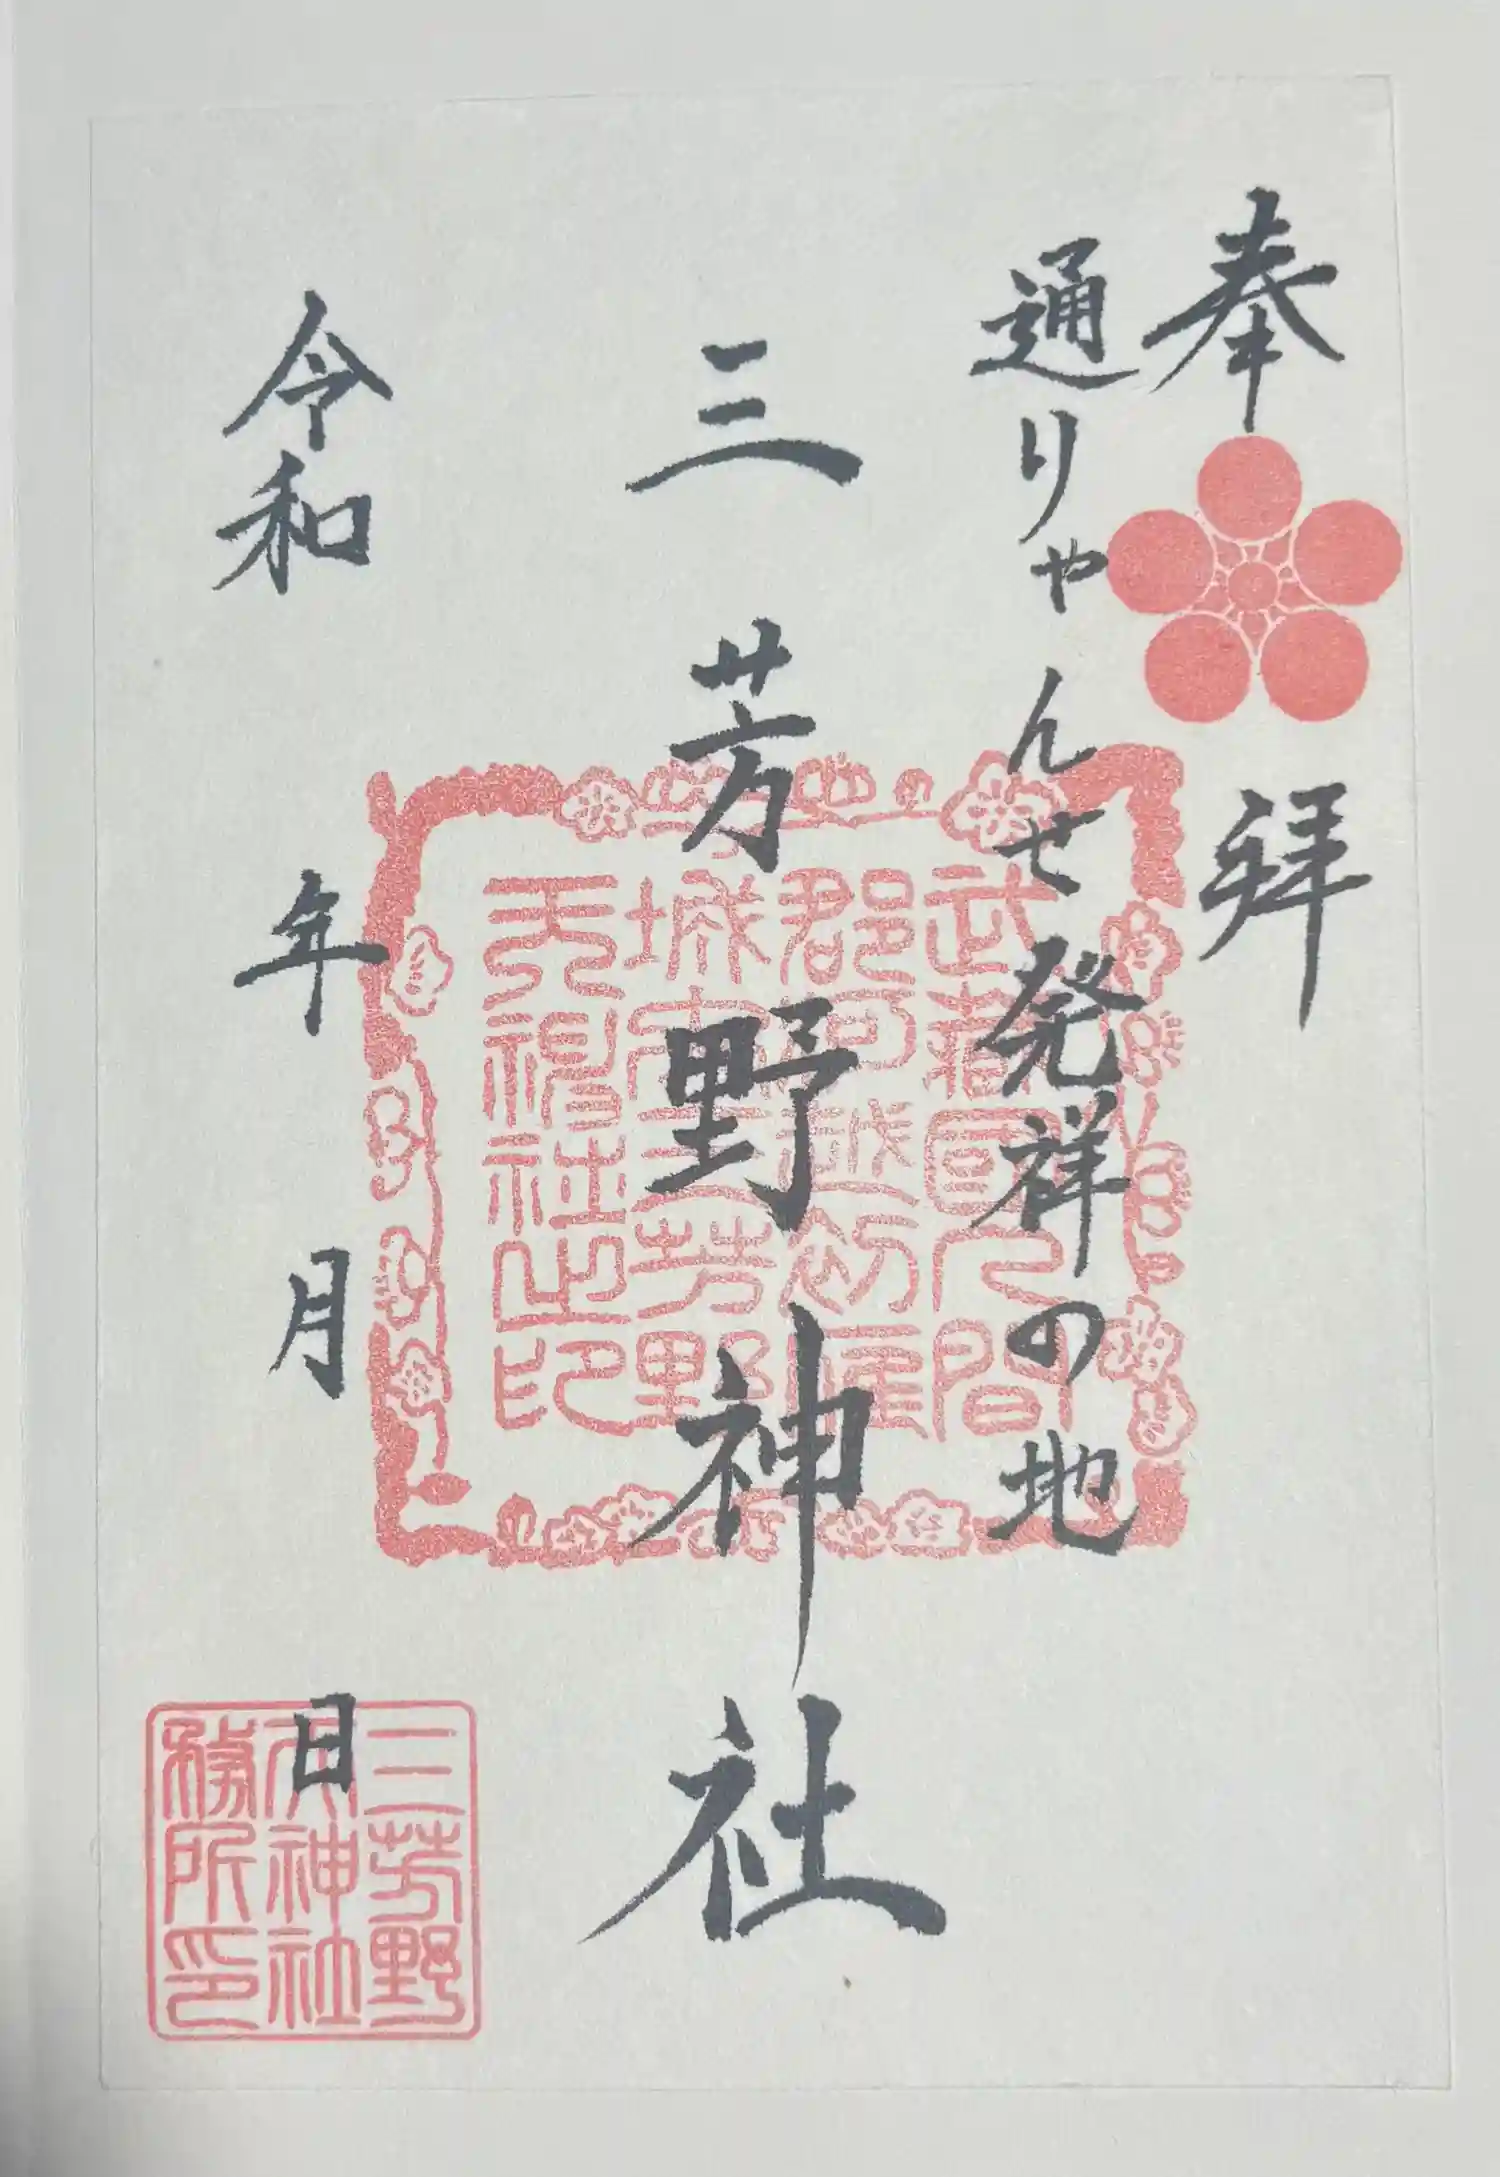 奉拝
通りゃんせ発祥の地
三芳野神社
令和 年 月 日
武蔵国入間
郡河越初雁
城内三芳野
天神社之印
三芳野
天神社
務所印